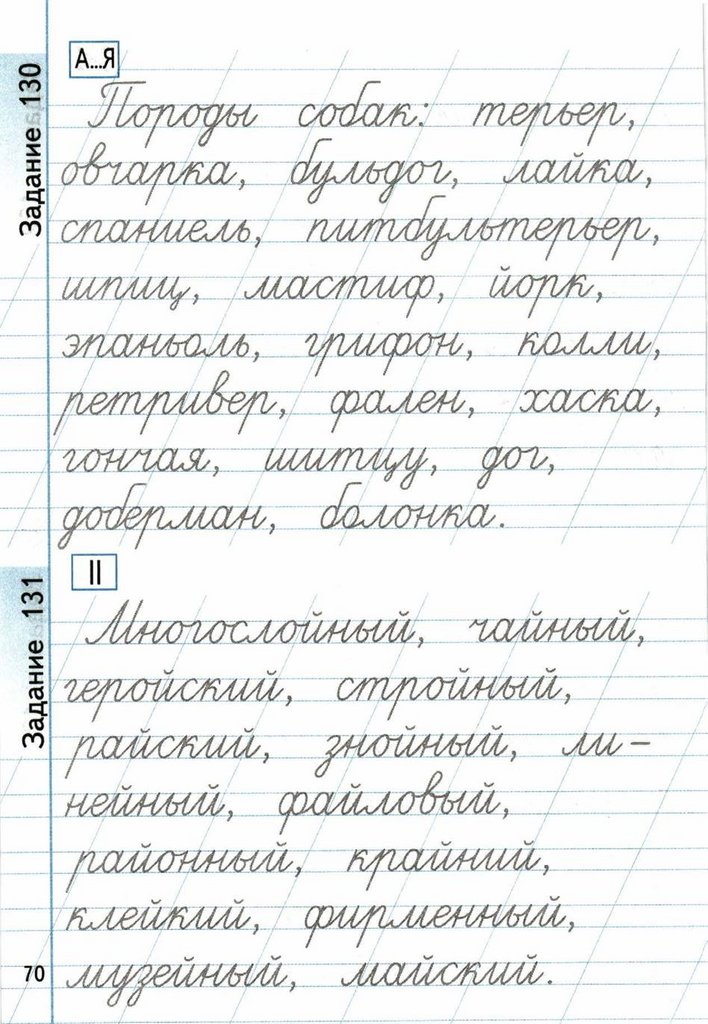 Задание 130
А...Я
Породы собак: терьер,
овчарка, бульдог, лайка,
спаниель, питбультерьер,
шпиц, мастиф, йорк,
эпаньоль, грифон, колли,
ретривер, фален, хаска,
гончая, шитцу, дог,
доберман, болонка.
Задание 131
II
Многослойный, чайный,
геройский, стройный,
райский, знойный, ли-
нейный, файловый,
районный, крайний,
клейкий, фирменный,
музейный, майский.
70